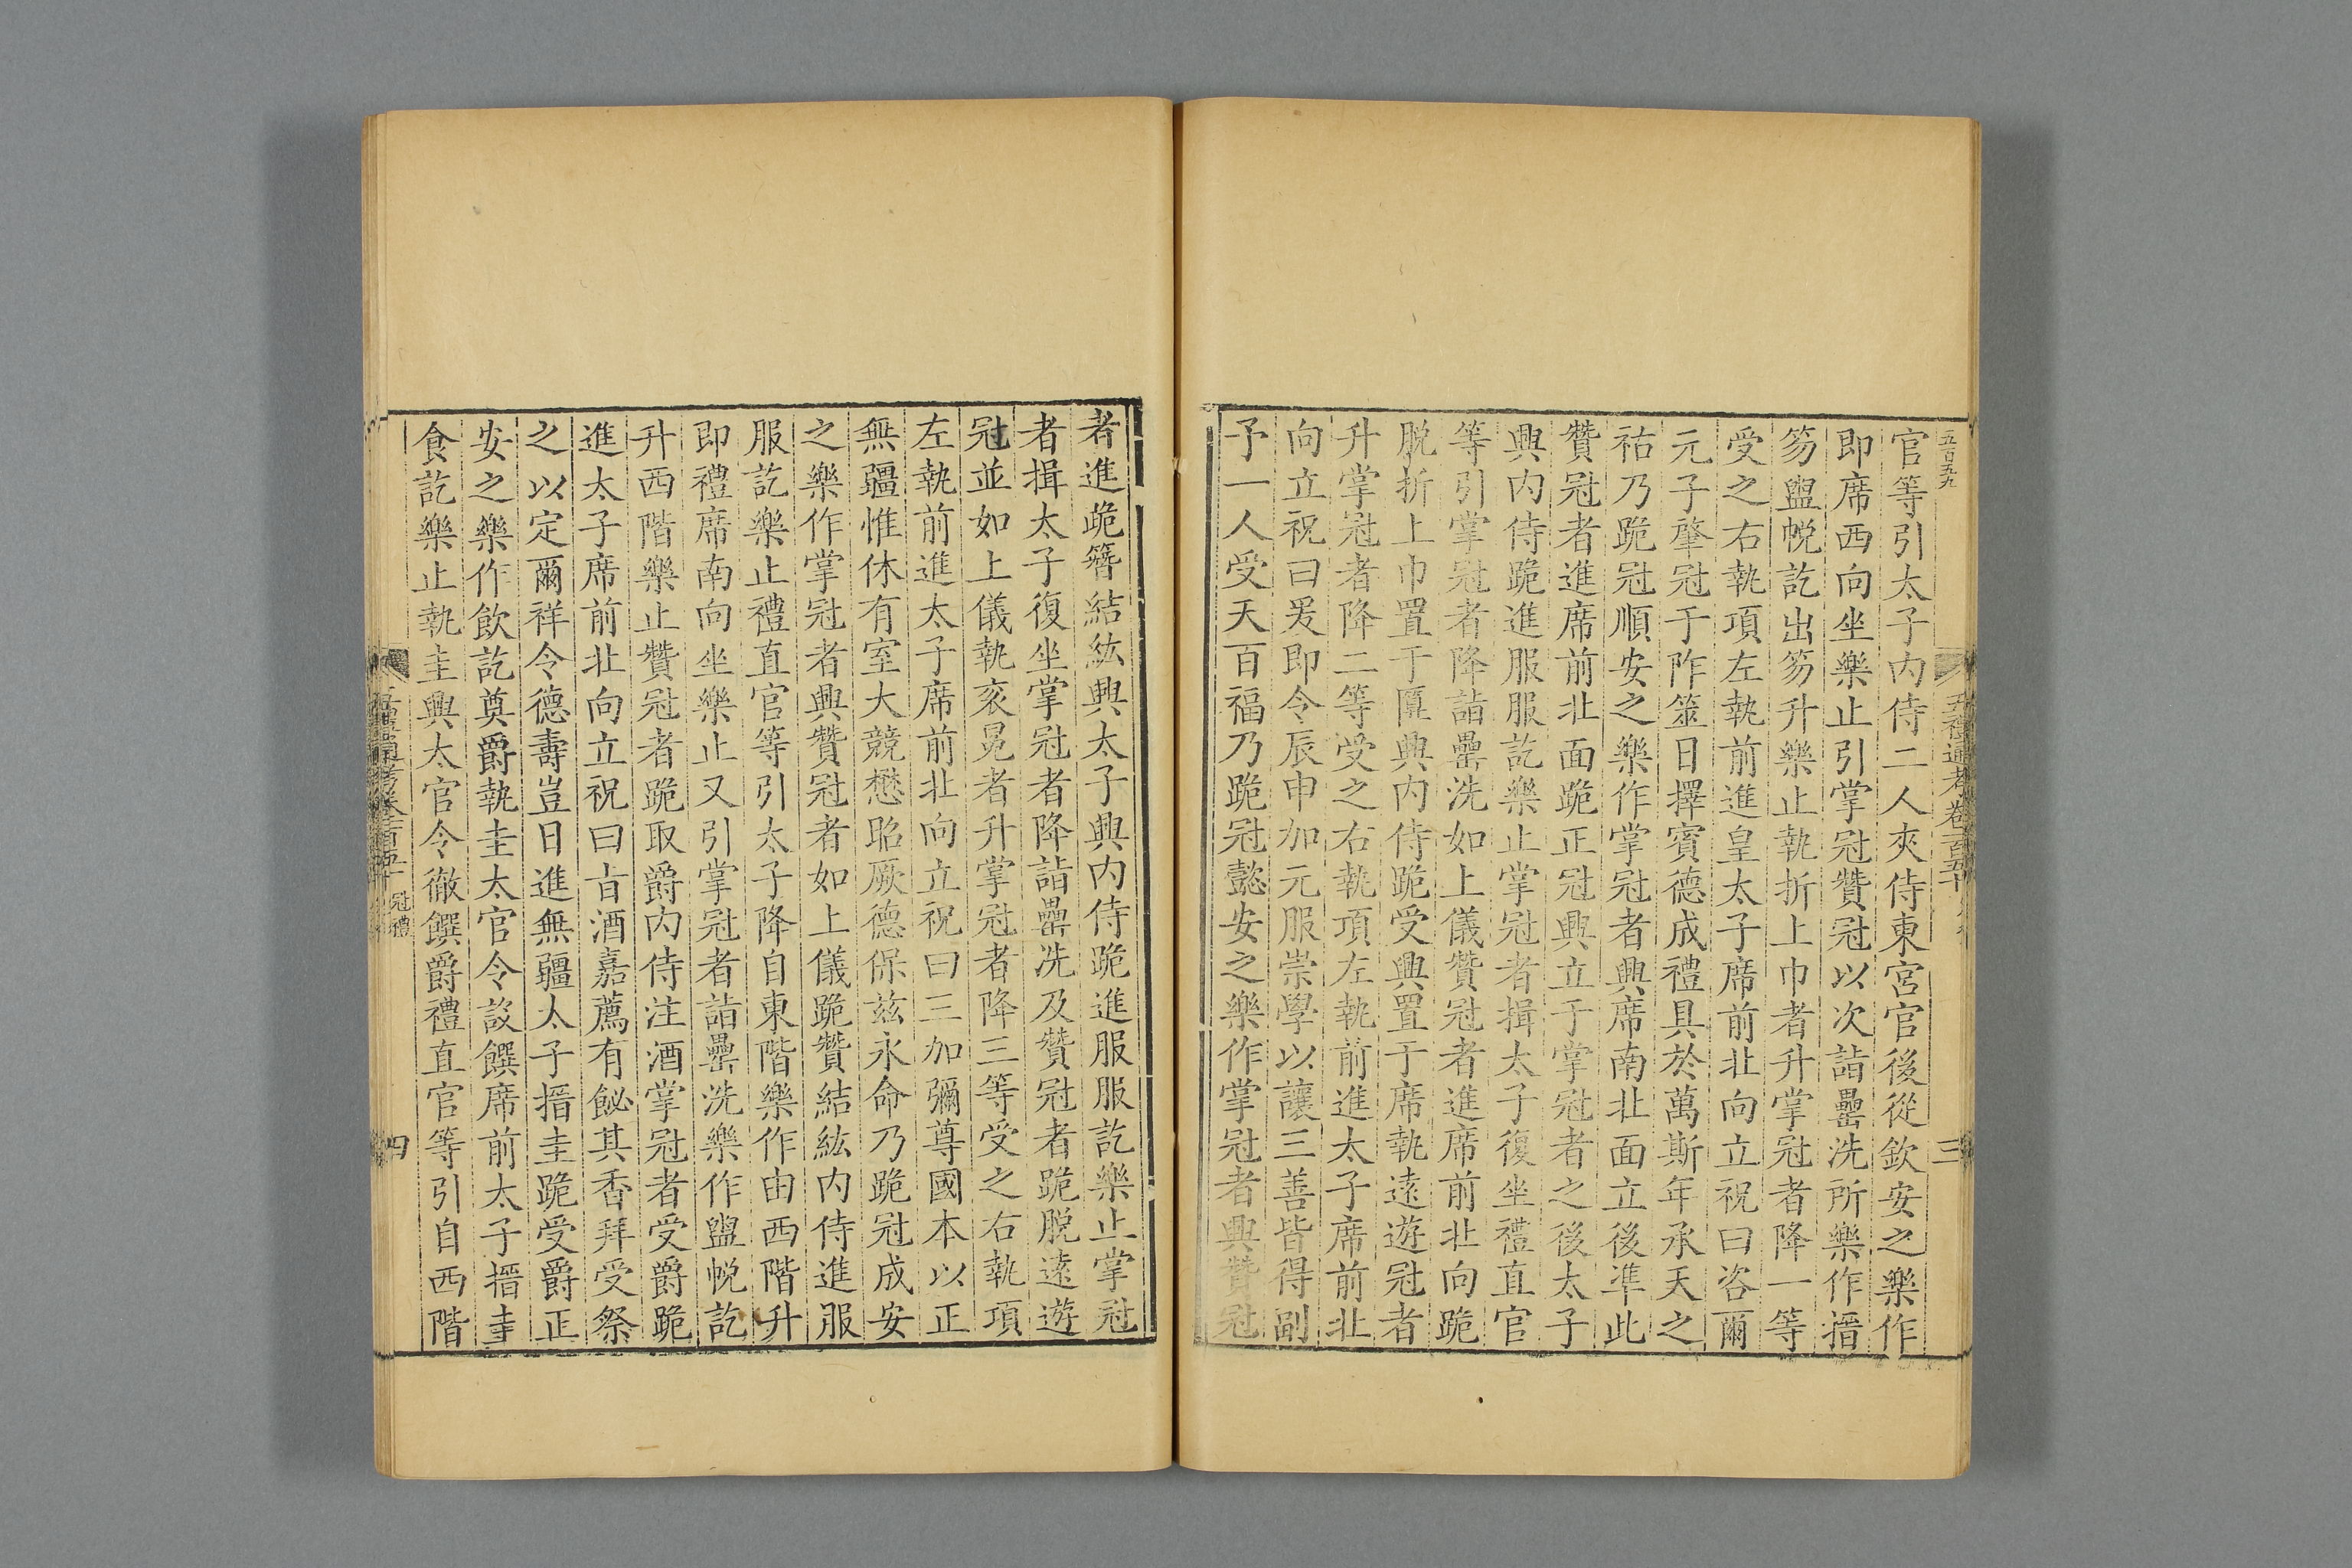 五百五九
五禮通考卷一百五十
三
官等引太子內侍二人夾侍東宮官後從欽安之樂作
即席西向坐樂止引掌冠贊冠以次詣罍洗所樂作搢
笏盥帨訖出笏升樂止執折上巾者升掌冠者降一等
受之右執項左執前進皇太子席前北向立祝曰咨爾
元子肇冠于阼筮日擇賓德成禮具於萬斯年承天之
祜乃跪冠順安之樂作掌冠者興席南北面立後準此
贊冠者進席前北面跪正冠興立于掌冠者之後太子
興內侍跪進服服訖樂止掌冠者揖太子復坐禮直官
等引掌冠者降詣罍洗如上儀贊冠者進席前北向跪
脫折上巾置于匴興內侍跪受興置于席執遠遊冠者
升掌冠者降二等受之右執項左執前進太子席前北
向立祝曰爰即令辰申加元服崇學以讓三善皆得副
予一人受天百福乃跪冠懿安之樂作掌冠者興贊冠
者進跪簪結紘興太子興內侍跪進服服訖樂止掌冠
者揖太子復坐掌冠者降詣罍洗及贊冠者跪脫遠遊
冠並如上儀執袞冕者升掌冠者降三等受之右執項
左執前進太子席前北向立祝曰三加彌尊國本以正
無疆惟休有室大競懋昭厥德保茲永命乃跪冠成安
之樂作掌冠者興贊冠者如上儀跪贊結紘內侍進服
服訖樂止禮直官等引太子降自東階樂作由西階升
即禮席南向坐樂止又引掌冠者詣罍洗樂作盥帨訖
升西階樂止贊冠者跪取爵內侍注酒掌冠者受爵跪
進太子席前北向立祝曰旨酒嘉薦有飶其香拜受祭
之以定爾祥令德壽豈日進無疆太子搢圭跪受爵正
安之樂作飲訖奠爵執圭太官令設饌席前太子搢圭
食訖樂止執圭興太官令徹饌爵禮直官等引自西階
五禮通考卷一百五十
冠禮
四